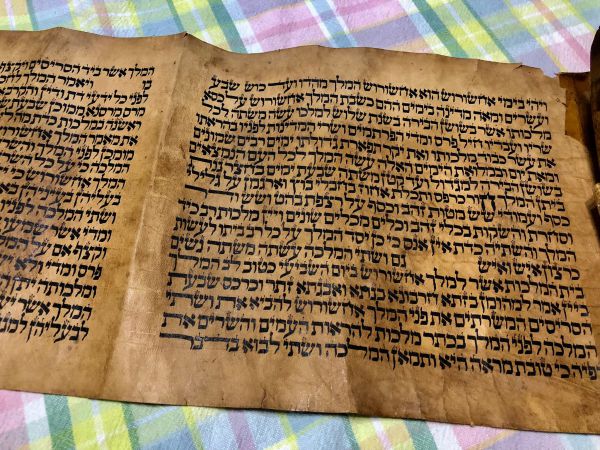 ויהי בימי אחשורוש הוא אחשורוש המלך מהדו ועד כוש שבע
ועשרים ומאה מדינה בימים ההם כשבת המלך אחשורוש על כסא
מלכותו אשר בשושן הבירה בשנת שלוש למלכו עשה משתה לכל
שריו ועבדיו חיל פרס ומדי הפרתמים ושרי המדינות לפניו בהראתו
את עשר כבוד מלכותו ואת יקר תפארת גדולתו ימים רבים שמונים
ומאת יום ובמלואת הימים האלה עשה המלך לכל העם הנמצאים
בשושן הבירה למגדול ועד קטן משתה שבעת ימים בחצר גנת ביתן
המלך חור כרפס ותכלת אחוז בחבלי בוץ וארגמן על גלילי
כסף ועמודי שש מטות זהב וכסף על רצפת בהט ושש ודר
וסחרת והשקות בכלי זהב וכלים מכלים שונים ויין מלכות רב כיד
המלך והשתיה כדת אין אנס כי כן יסד המלך על כל רב ביתו לעשות
כרצון איש ואיש גם ושתי המלכה עשתה משתה נשים
בית המלכות אשר למלך אחשורוש ביום השביעי כטוב לב המלך
ביין אמר למהומן בזתא חרבונא בגתא ואבגתא זתר וכרכס שבעת
הסריסים המשרתים את פני המלך אחשורוש להביא את ושתי
המלכה לפני המלך בכתר מלכות להראות העמים והשרים את
יפיה כי טובת מראה היא ותמאן המלכה ושתי לבוא בדבר
המלך אשר ביד הסריסים ויקצף
ויאמר המלך
לפני כל ידעי דת ודין
מרס מרסנא ממוכן שבעת
ראשנה במלכות כדת
את מאמר המלך
ממוכן לפני
המלכה כי על כל
המלך
על כל
ושתי המלכה
ומדי אשר
וקצף אם על
פרס ומדי ולא
ומלכותה
המלך אשר
לבעליהן